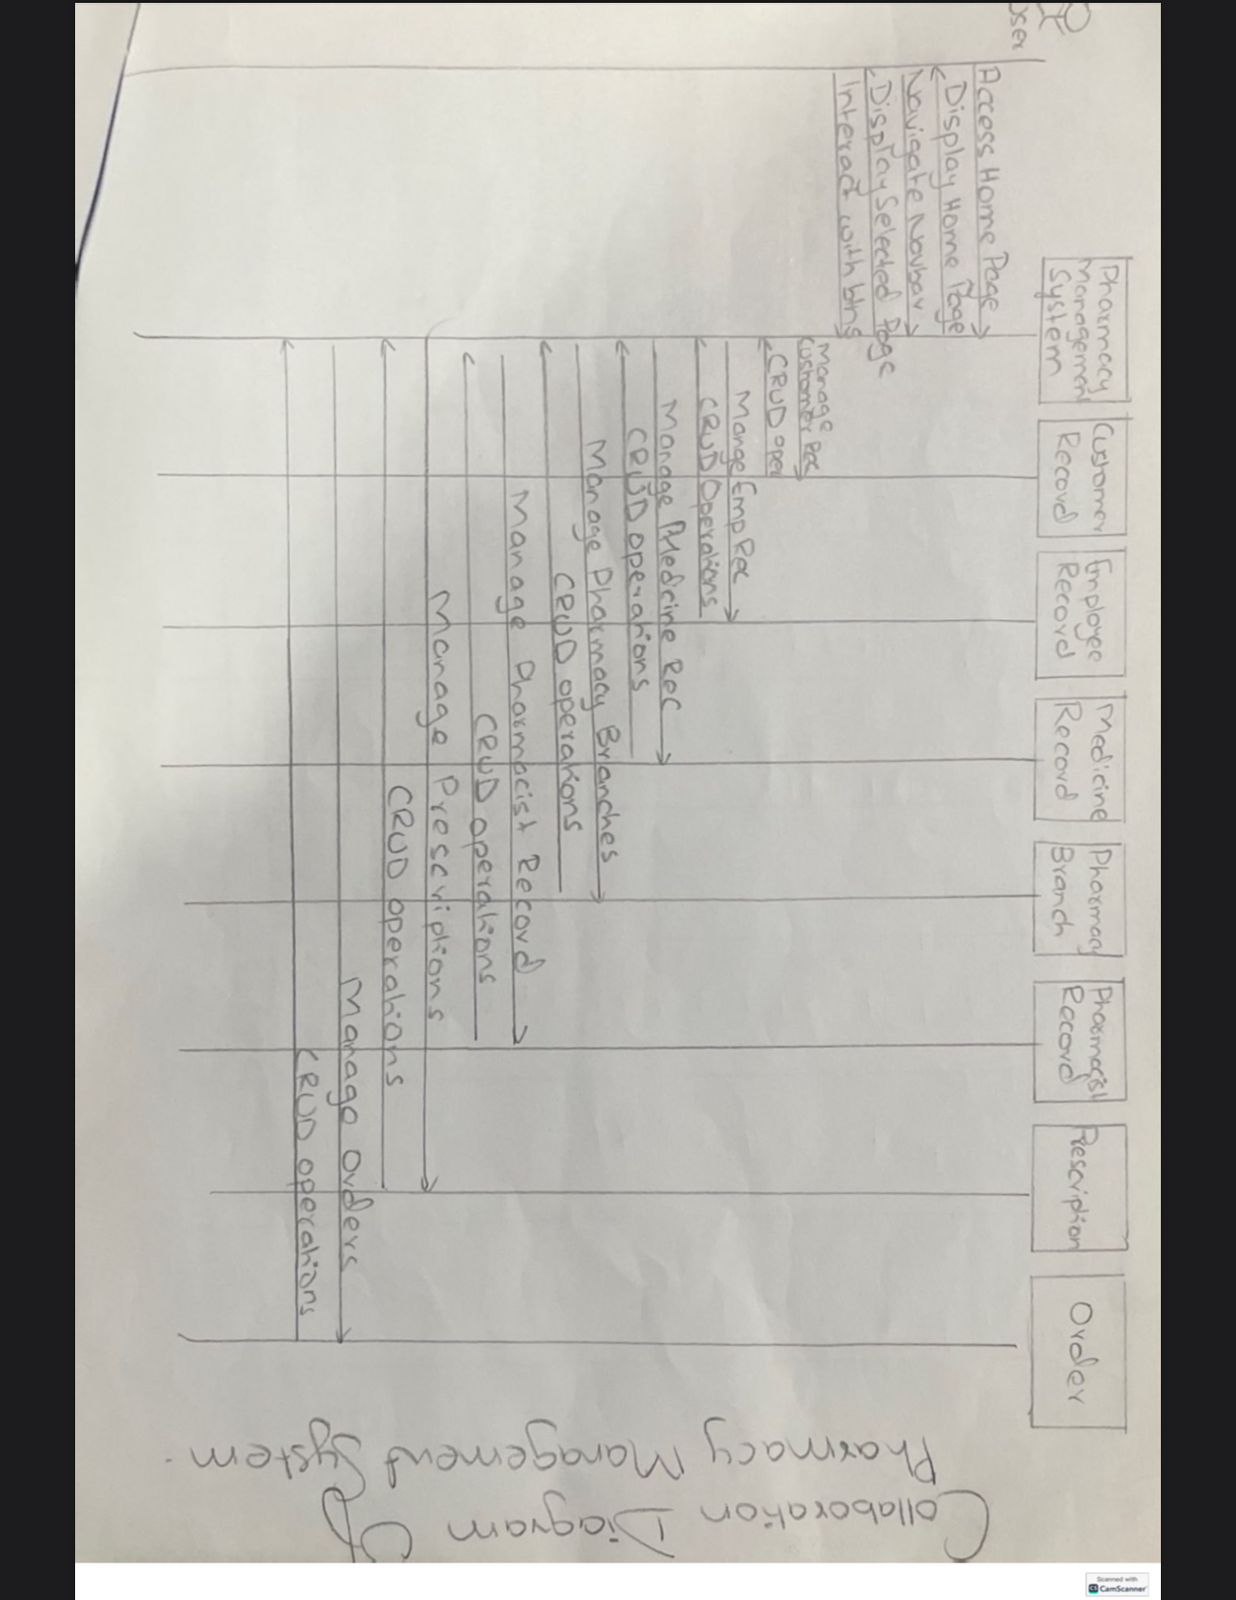 User
Pharmacy
Management
System
Customer
Record
Employee
Record
Medicine
Record
Pharmacy
Branch
Pharmacist
Record
Prescription
Order
Access Home Page
Display Home Page
Navigate Navbar
Display Selected Page
Interact with btns
Manage
Customer Rec
CRUD oper
Mange Emp Rec
CRUD Operations
Manage Medicine Rec
CRUD operations
Manage Pharmacy Branches
CRUD operations
Manage Pharmacist Record
CRUD operations
Manage Prescriptions
CRUD operations
Manage Orders
CRUD operations
Collaboration Diagram Of
Pharmacy Management System.
Scanned with
CS CamScanner